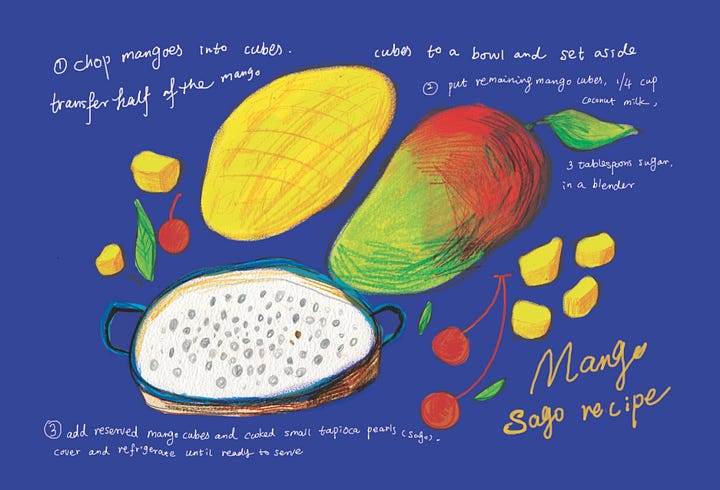 ① chop mangoes into cubes.
transfer half of the mango
cubes to a bowl and set aside
② put remaining mango cubes, 1/4 cup
coconut milk,
3 tablespoons sugar,
in a blender
③ add reserved mango cubes and cooked small tapioca pearls (sago).
cover and refrigerate until ready to serve
Mango
Sago recipe